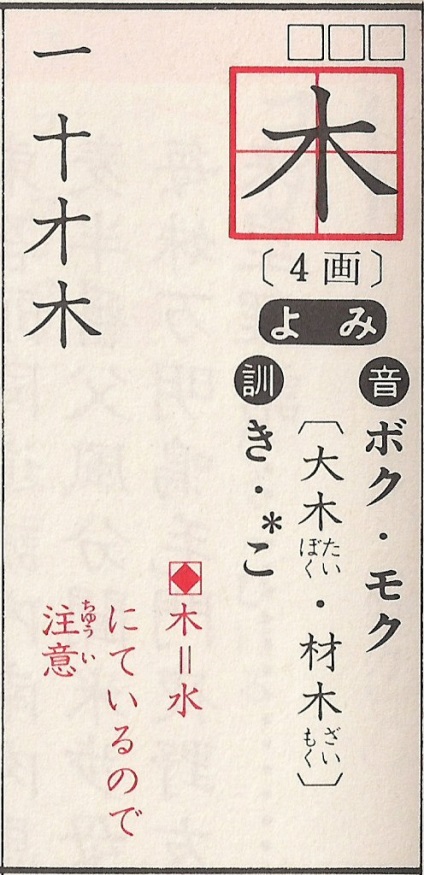 木
〔4画〕
よみ
音 ボク・モク
〔大木たいぼく・材木ざいもく〕
訓 き・*こ
木＝水
にているので
注意ちゅうい
一 十 才 木